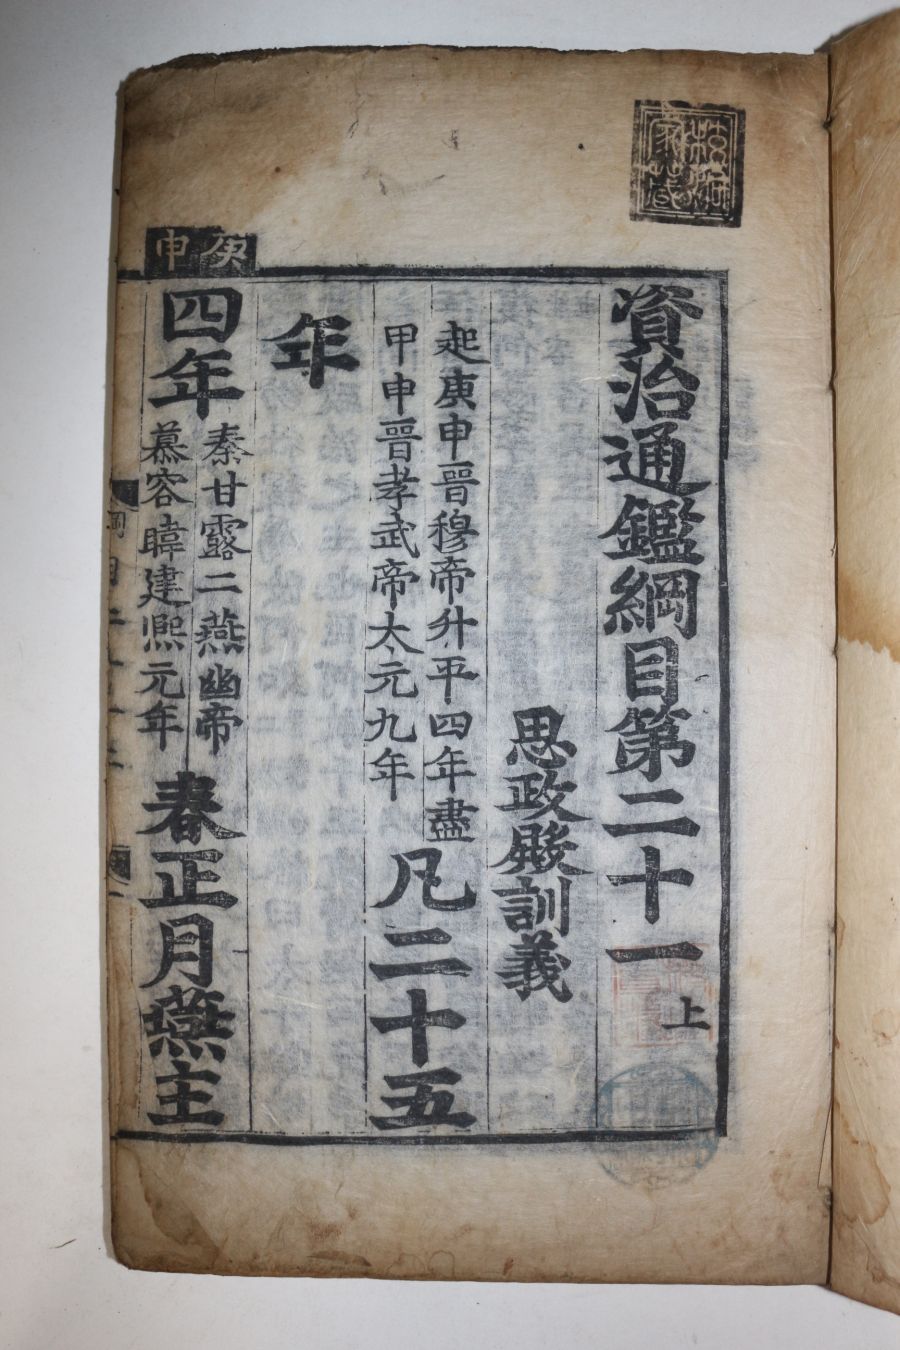 資治通鑑綱目第二十一上
思政殿訓義
起庚申晉穆帝升平四年盡
甲申晉孝武帝太元九年
凡二十五
年
庚申
四年
秦甘露二燕幽帝
慕容暐建熈元年
春正月燕主